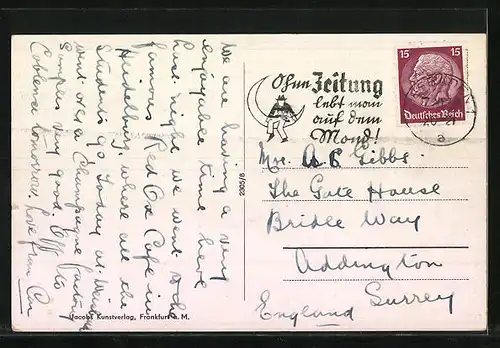 We are having a very
enjoyable time here
last night we went to the
famous Red Ox Cafe in
Heidelburg, where all the
Students go. Today at
went over a Champagne factory
Samples very good. Off to
Coblenz tomorrow. Love from
Jacobs Kunstverlag, Frankfurt a. M.
Ohne Zeitung
lebt man
auf dem
Mond!
15 15
Deutsches Reich
a
Mrs. A C Gibbs.
The Gate House
Bridle Way
Addington
Surrey
England